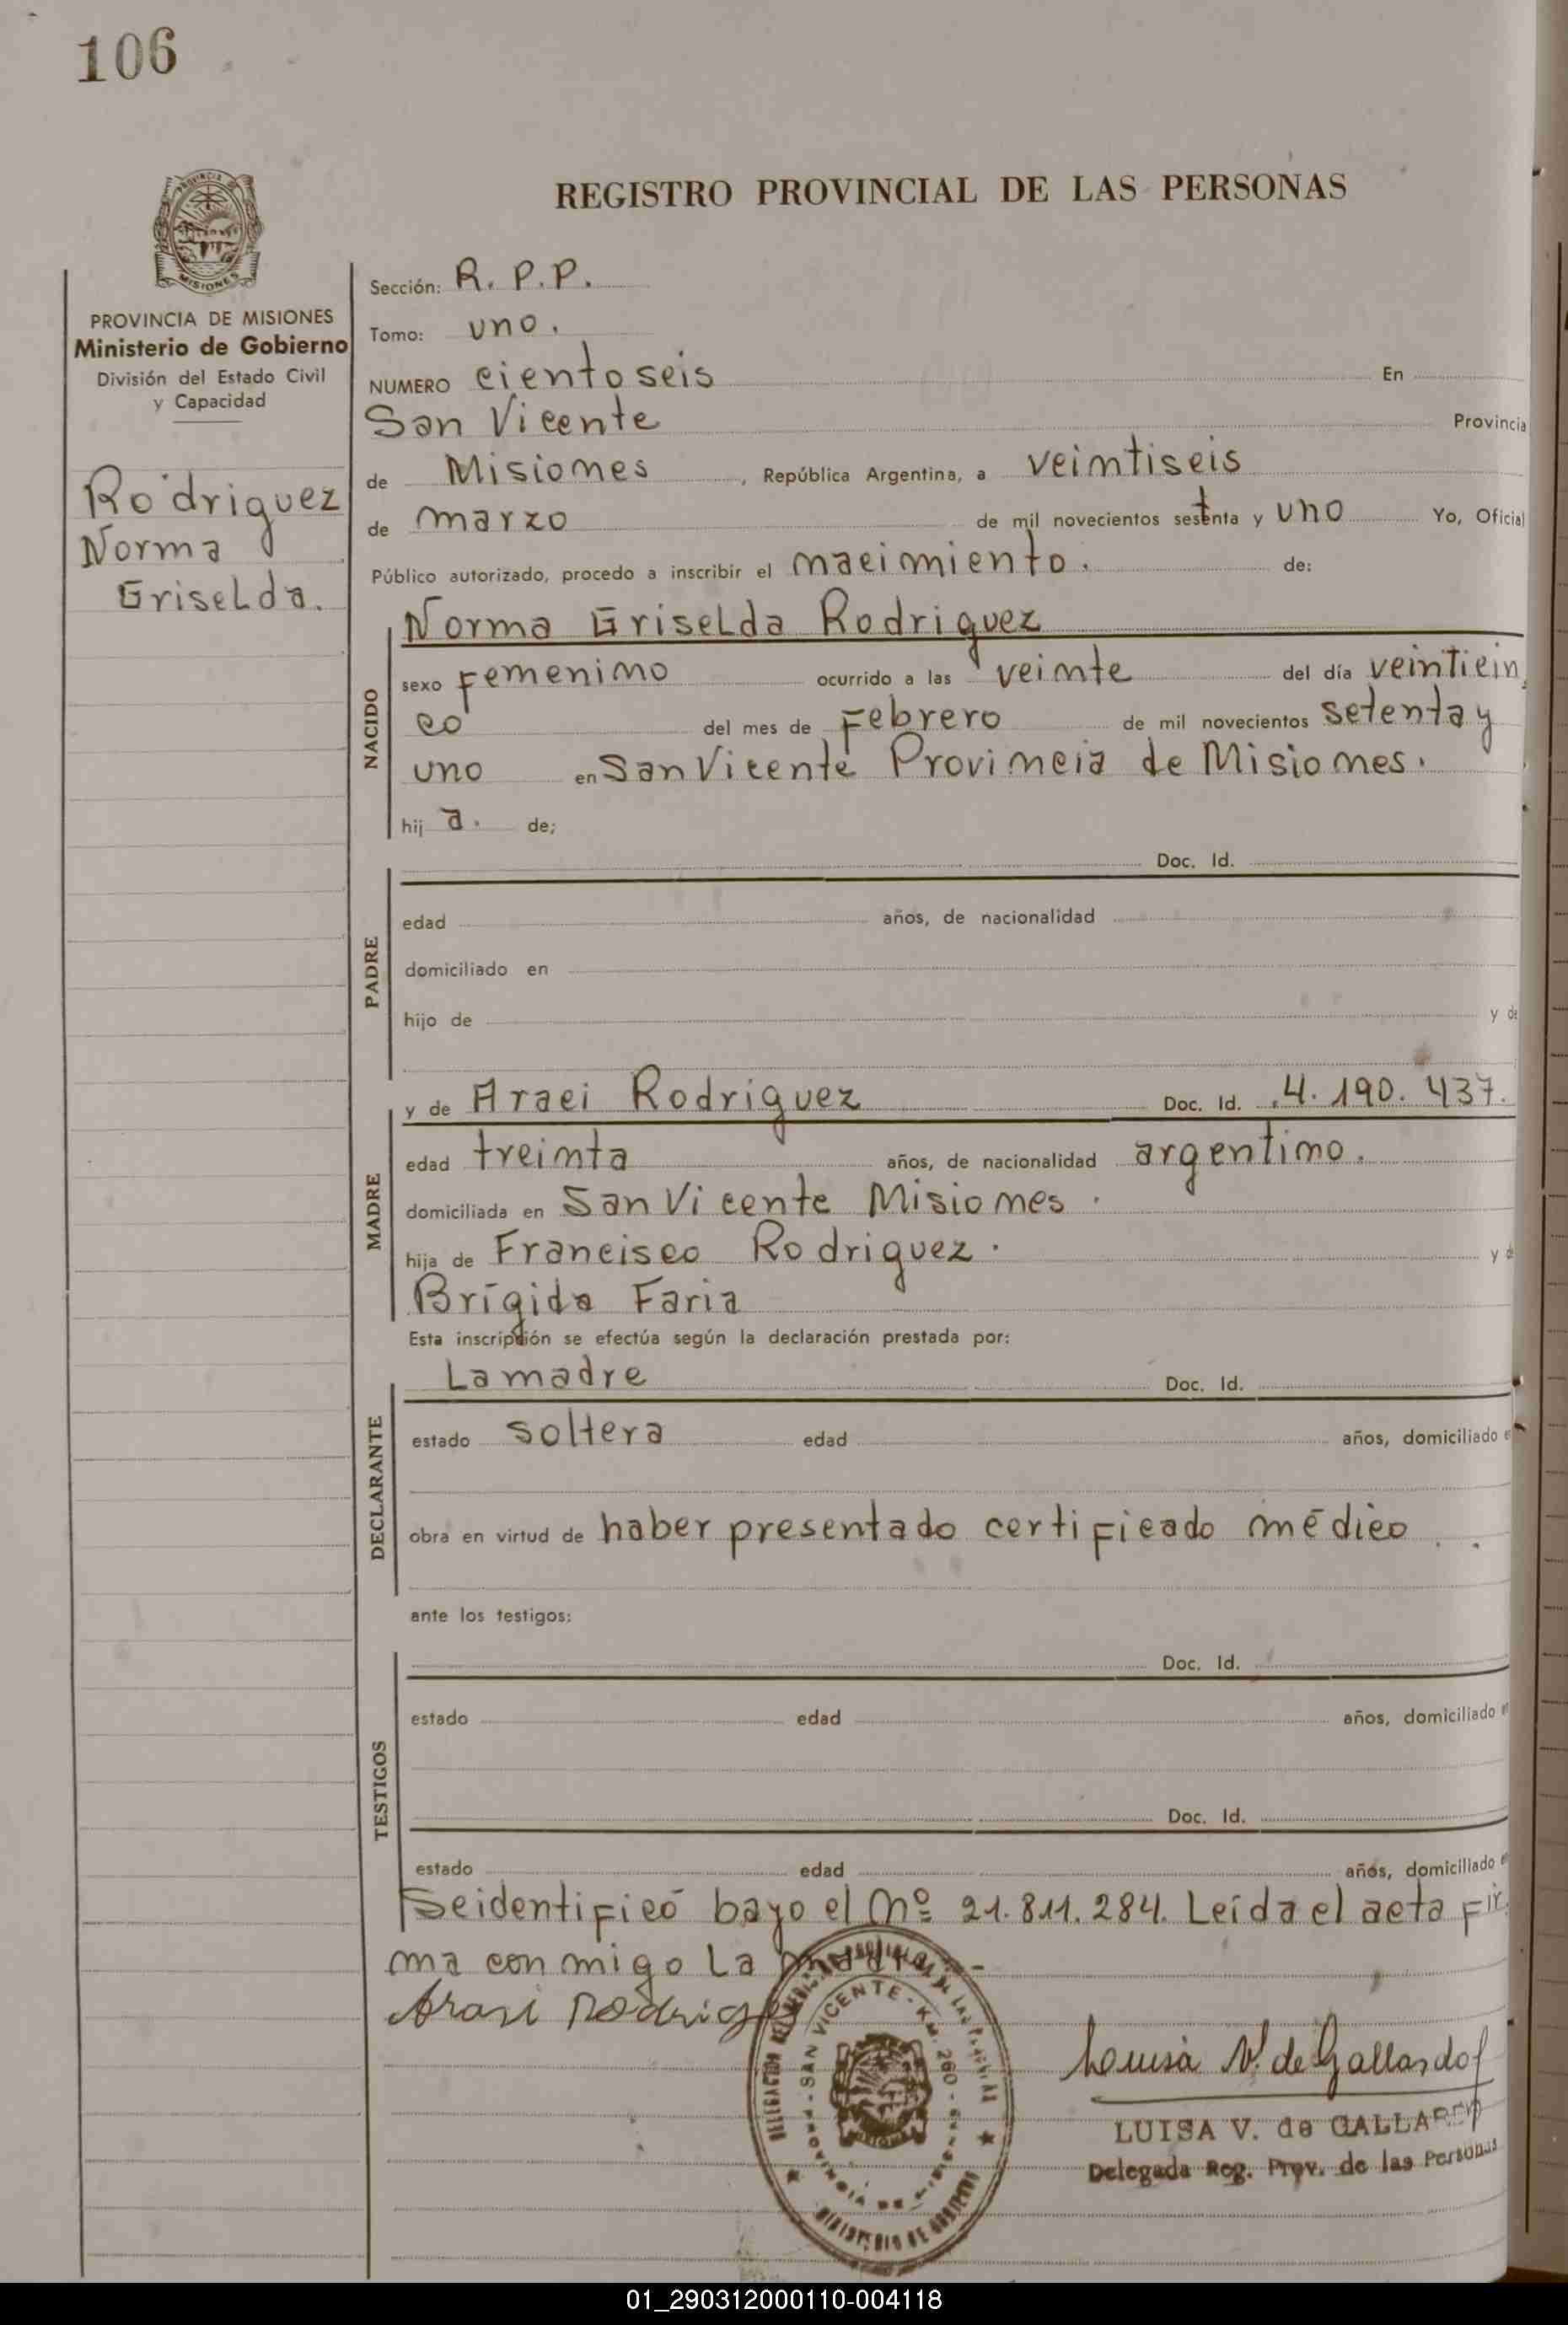 106
REGISTRO PROVINCIAL DE LAS PERSONAS
MISIONES
PROVINCIA DE MISIONES
Ministerio de Gobierno
División del Estado Civil
y Capacidad
Rodriguez
Norma
Griselda.
Sección: R. P. P.
Tomo: uno.
NUMERO ciento seis En
San Vicente Provincia
de Misiones, República Argentina, a veintiseis
de marzo de mil novecientos setenta y uno Yo, Oficial
Público autorizado, procedo a inscribir el nacimiento. de:
NACIDO
Norma Griselda Rodriguez
sexo femenino ocurrido a las veinte del día veinticin
co del mes de febrero de mil novecientos setenta y
uno en San Vicente Provincia de Misiones.
hij a. de;
PADRE
Doc. Id.
edad años, de nacionalidad
domiciliado en
hijo de y de
MADRE
y de Araci Rodriguez Doc. Id. 4.190.437.
edad treinta años, de nacionalidad argentino.
domiciliada en San Vicente Misiones.
hija de Francisco Rodriguez. y d
Brígida Faria
Esta inscripción se efectúa según la declaración prestada por:
DECLARANTE
La madre Doc. Id.
estado soltera edad años, domiciliado e
obra en virtud de haber presentado certificado médico
ante los testigos:
TESTIGOS
Doc. Id.
estado edad años, domiciliado e
Doc. Id.
estado edad años, domiciliado e
Se identificó bayo el Nº 21.811.284. Leída el acta fir
ma conmigo la madre.-
Araci Rodrigez
SAN VICENTE - KM. 260 -
PROVINCIA DE MISIONES
MINISTERIO DE GOBIERNO
Luisa V. de Gallardo
LUISA V. de GALLARDO
Delegada Reg. Prov. de las Personas
01_290312000110-004118